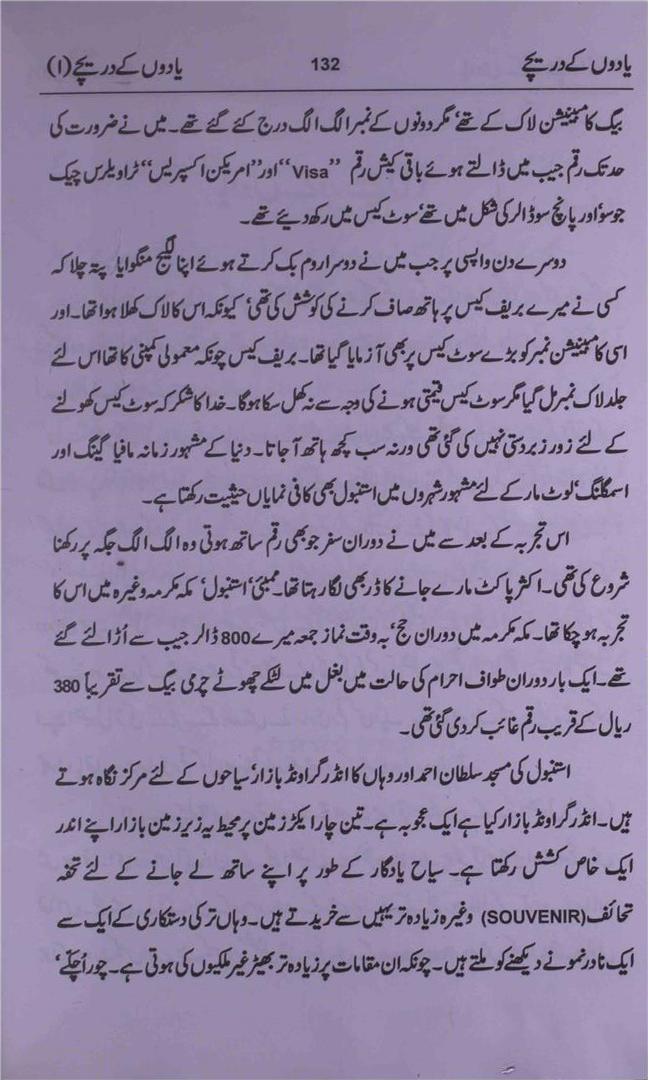 یادوں کے دریچے 132 یادوں کے دریچے (۱)
بیگ کا مبینیشن لاک کے تھے، مگر دونوں کے نمبر الگ الگ درج کئے گئے تھے۔ میں نے ضرورت کی
حد تک رقم جیب میں ڈالتے ہوئے باقی کیش رقم ”Visa“ اور ”امریکن اکسپریس“ ٹراویلرس چیک
جو سو اور پانچ سو ڈالر کی شکل میں تھے، سوٹ کیس میں رکھ دیئے تھے۔
دوسرے دن واپسی پر جب میں نے دوسرا روم بک کرتے ہوئے اپنا لگیج منگوایا پتہ چلا کہ
کسی نے میرے بریف کیس پر ہاتھ صاف کرنے کی کوشش کی تھی، کیونکہ اس کا لاک کھلا ہوا تھا۔ اور
اسی کا مبینیشن نمبر کو بڑے سوٹ کیس پر بھی آزمایا گیا تھا۔ بریف کیس چونکہ معمولی کمپنی کا تھا اس لئے
جلد لاک نمبر مل گیا مگر سوٹ کیس قیمتی ہونے کی وجہ سے نہ کھل سکا ہوگا۔ خدا کا شکر کہ سوٹ کیس کھولنے
کے لئے زور زبردستی نہیں کی گئی تھی ورنہ سب کچھ ہاتھ آ جاتا۔ دنیا کے مشہور زمانہ مافیا گینگ اور
اسمگلنگ، لوٹ مار کے لئے مشہور شہروں میں استنبول بھی کافی نمایاں حیثیت رکھتا ہے۔
اس تجربہ کے بعد سے میں نے دوران سفر جو بھی رقم ساتھ ہوتی وہ الگ الگ جگہ پر رکھنا
شروع کی تھی۔ اکثر پاکٹ مارے جانے کا ڈر بھی لگا رہتا تھا۔ ممبئی، استنبول، مکہ مکرمہ وغیرہ میں اس کا
تجربہ ہو چکا تھا۔ مکہ مکرمہ میں دوران حج، بہ وقت نماز جمعہ میرے 800 ڈالر جیب سے اُڑا لئے گئے
تھے۔ ایک بار دوران طواف احرام کی حالت میں بغل میں لٹکے چھوٹے چرمی بیگ سے تقریباً 380
ریال کے قریب رقم غائب کر دی گئی تھی۔
استنبول کی مسجد سلطان احمد اور وہاں کا انڈر گراونڈ بازار، سیاحوں کے لئے مرکز نگاہ ہوتے
ہیں۔ انڈر گراونڈ بازار کیا ہے ایک عجوبہ ہے۔ تین چار ایکڑ زمین پر محیط یہ زیر زمین بازار اپنے اندر
ایک خاص کشش رکھتا ہے۔ سیاح یادگار کے طور پر اپنے ساتھ لے جانے کے لئے تحفہ
تحائف (SOUVENIR) وغیرہ زیادہ تر یہیں سے خریدتے ہیں۔ وہاں ترکی دستکاری کے ایک سے
ایک نادر نمونے دیکھنے کو ملتے ہیں۔ چونکہ ان مقامات پر زیادہ تر بھیڑ غیر ملکیوں کی ہوتی ہے۔ چور اُچکّے،